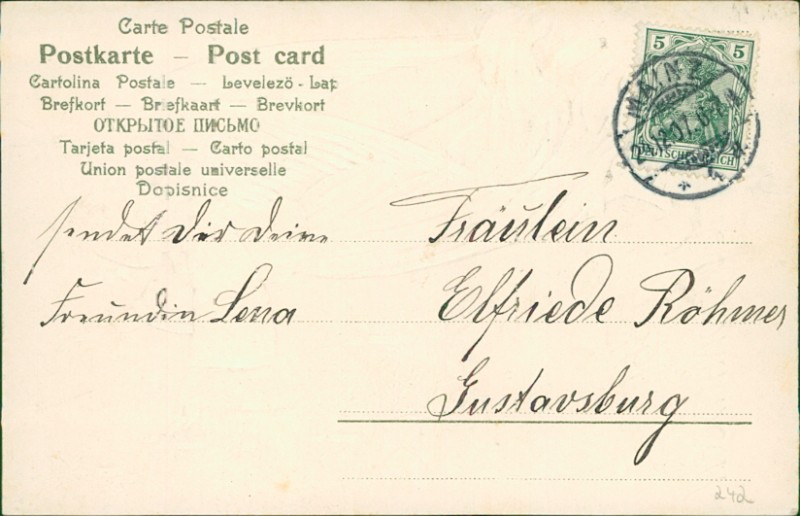 Carte Postale
Postkarte — Post card
Cartolina Postale — Levelezö-Lap
Brefkort — Briefkaart — Brevkort
ОТКРЫТОЕ ПИСЬМО
Tarjeta postal — Carto postal
Union postale universelle
Dopisnice
5 5
MAINZ
DEUTSCHES REICH
sendet Dir Deine
Freundin Lena
Fräulein
Elfriede Röhmer
Gustavsburg
242